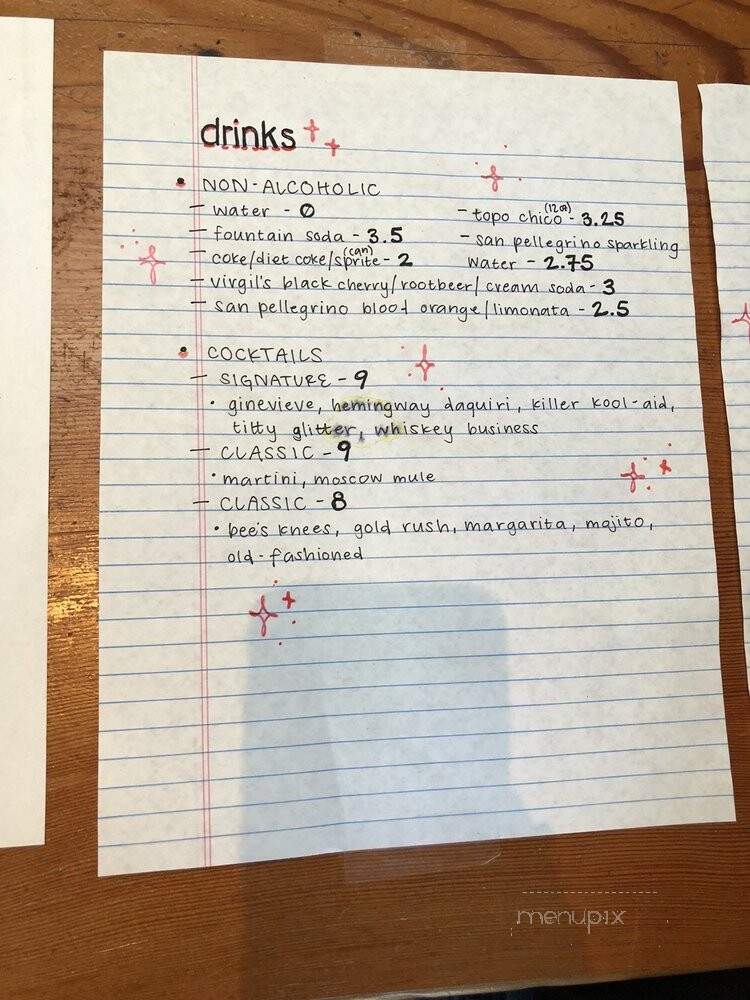 drinks
• NON-ALCOHOLIC
- water - 0
- fountain soda - 3.5
- coke/diet coke/sprite (can) - 2
- topo chico (12oz) - 3.25
- san pellegrino sparkling
water - 2.75
- virgil's black cherry/rootbeer/cream soda - 3
- san pellegrino blood orange/limonata - 2.5
• COCKTAILS
- SIGNATURE - 9
• ginevieve, hemingway daquiri, killer kool-aid,
titty glitter, whiskey business
- CLASSIC - 9
• martini, moscow mule
- CLASSIC - 8
• bee's knees, gold rush, margarita, mojito,
old-fashioned
menupix